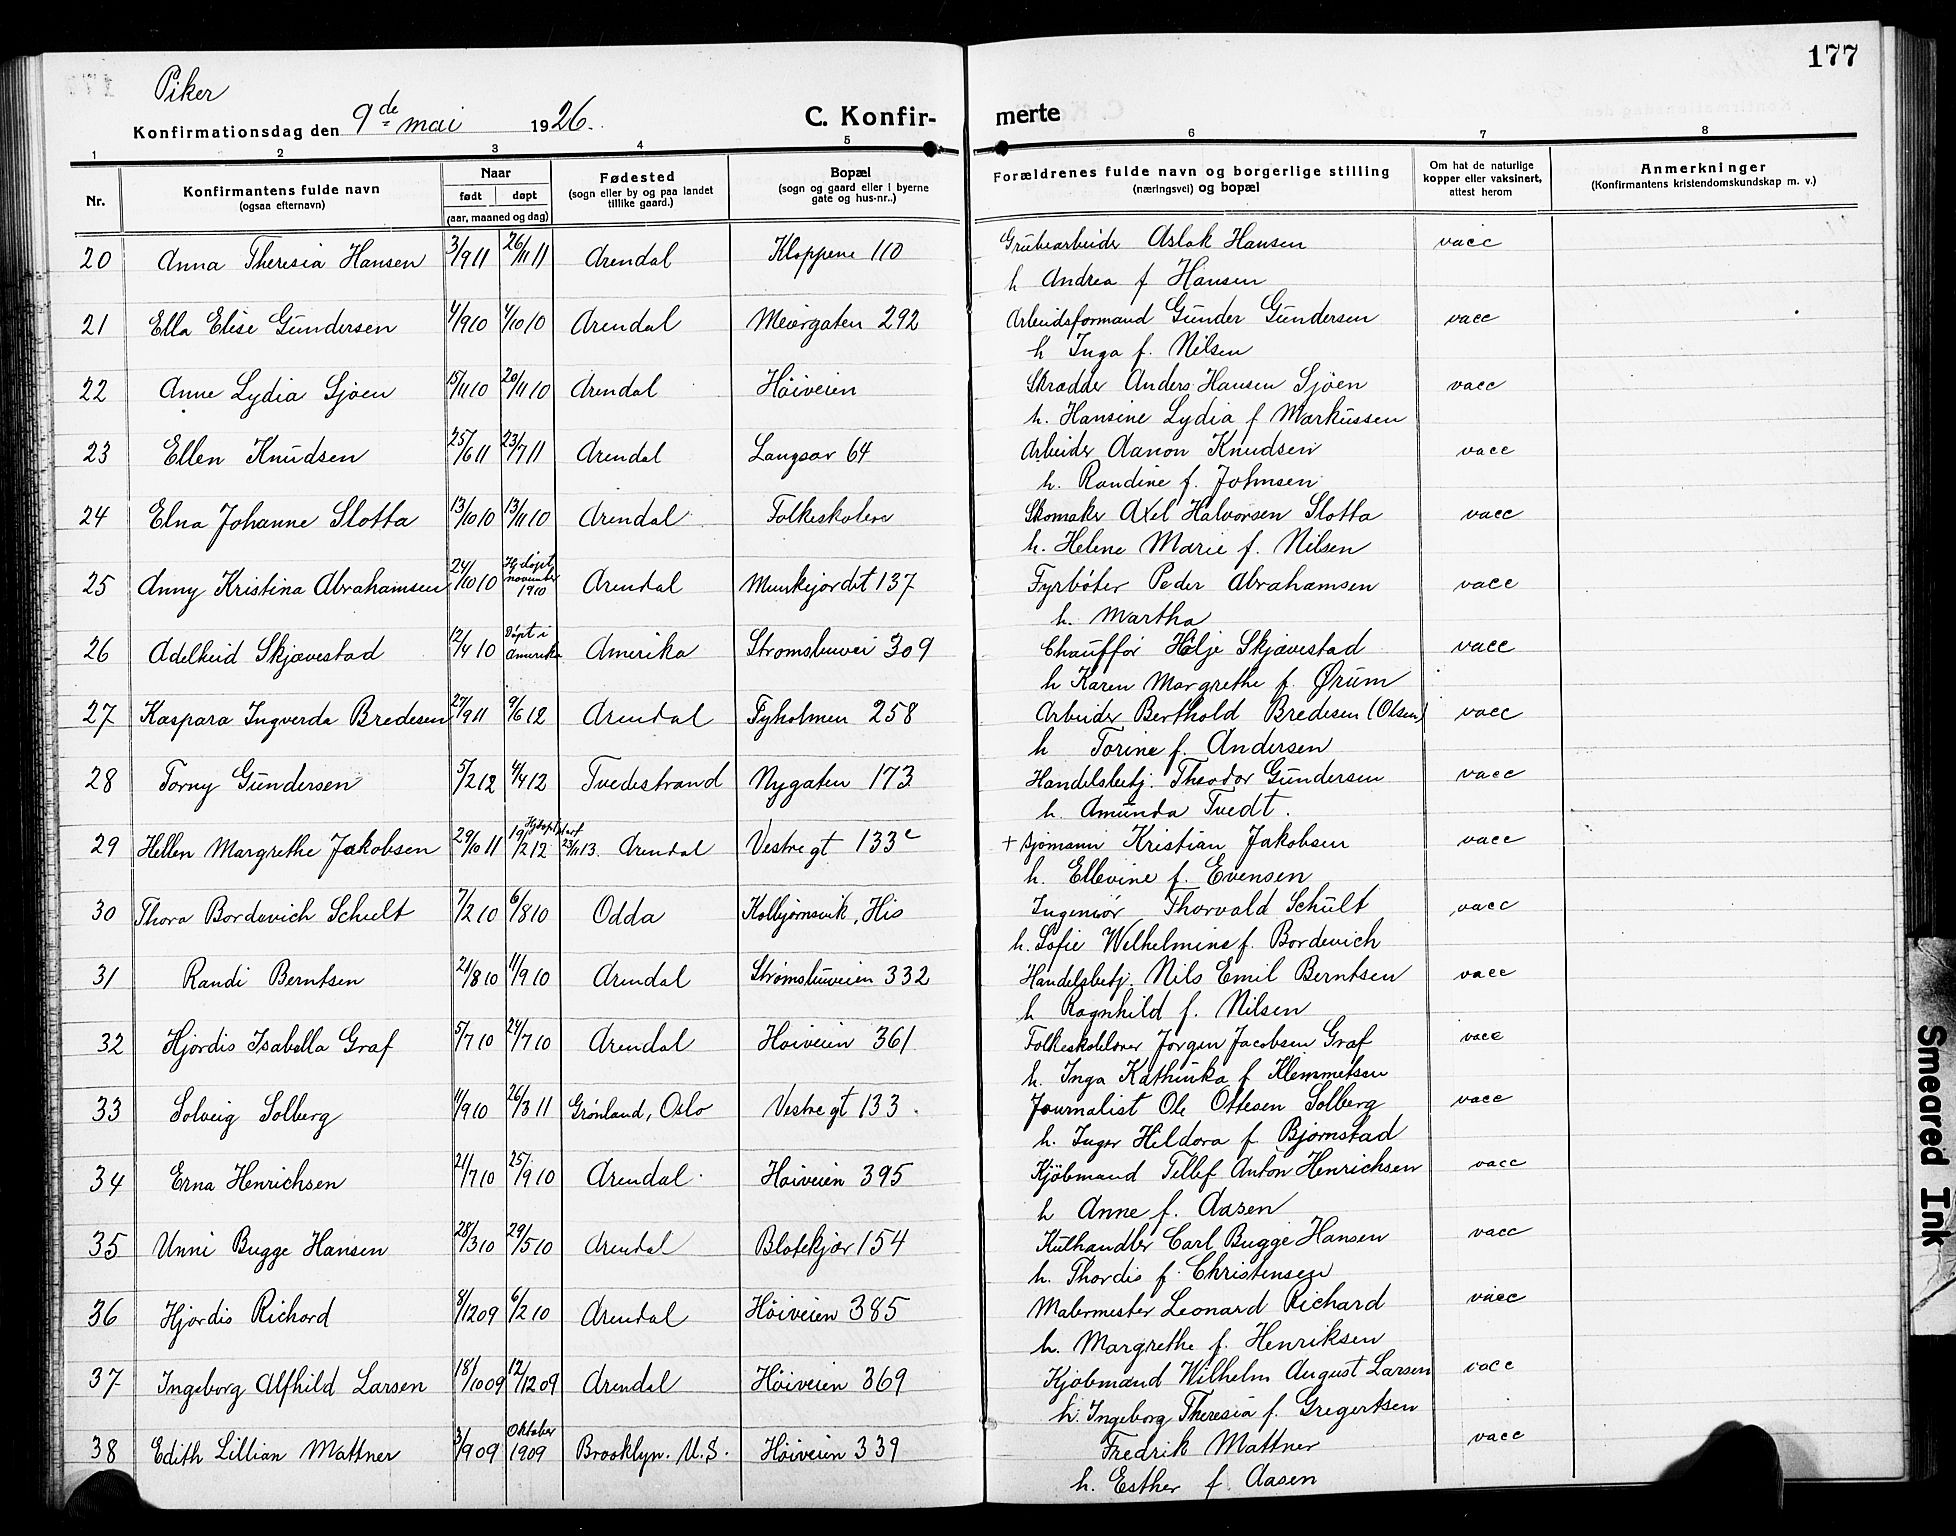 177
Piker
Konfirmationsdag den 9de mai 1926.
C. Konfir- merte
1 2 3 4 5 6 7 8
Nr. Konfirmantens fulde navn (ogsaa efternavn) Naar født døpt (aar, maaned og dag) Fødested (sogn eller by og paa landet tillike gaard.) Bopæl (sogn og gaard eller i byerne gate og hus-nr..) Forældrenes fulde navn og borgerlige stilling (næringsvei) og bopæl Om hat de naturlige kopper eller vaksinert, attest herom Anmerkninger (Konfirmantens kristendomskundskap m. v.)
20 Anna Theresia Hansen 3/9 11 26/11 11 Arendal Kloppene 110 Grubearbeider Aslak Hansen vacc
h Andrea f Hansen
21 Ella Elise Gundersen 4/9 10 4/10 10 Arendal 292 Arbeidsformand Gunder Gundersen vacc
h Inga f. Nilsen
22 Anne Lydia Sjøen 15/11 10 20/11 10 Arendal Høiveien Skrædder Anders Hansen Sjøen vacc
h. Hansine Lydia f Markussen
23 Ellen Knudsen 25/6 11 23/7 11 Arendal Langsæ 64 Arbeider Aanon Knudsen vacc
h. Randine f. Johnsen
24 Elna Johanne Slotta 13/10 10 13/11 10 Arendal Folkeskolen Skomaker Axel Halvorsen Slotta vacc
h. Helene Marie f. Nilsen
25 Anny Kristina Abrahamsen 24/10 10 Hj.døpt november 1910 Arendal Munkejordet 137 Fyrbøter Peder Abrahamsen vacc
h. Martha
26 Adelheid Skjævestad 12/4 10 Døpt i Amerika Amerika Strømsbuvei 309 Chauffør Helje Skjævestad vacc
h Karen Margrethe f. Ørum
27 Kaspara Ingverda Bredesen 27/9 11 9/6 12 Arendal Tyholmen 258 Arbeider Berthold Bredesen (Olsen) vacc
h Torine f. Andersen
28 Torny Gundersen 5/2 12 4/4 12 Tvedestrand Nygaten 173 Handelsbetj. Theodor Gundersen vacc
h. Amunda Tvedt.
29 Hellen Margrethe Jakobsen 29/10 11 19/2 12 Hjdøpt stadf 23/11 13. Arendal Vestre gt 133c + sjømann Kristian Jakobsen vacc
h. Ellevine f. Evensen
30 Thora Bordevich Schult 7/2 10 6/8 10 Odda Kolbjørnsvik, His Ingeniør Thorvald Schult vacc
h. Sofie Wilhelmine f. Bordevich
31 Randi Berntsen 21/8 10 11/9 10 Arendal Strømsbuveien 332 Handelsbetj. Nils Emil Berntsen vacc
h Ragnhild f. Nilsen
32 Hjørdis Isabella Graf 5/7 10 24/7 10 Arendal Høiveien 361 Folkeskolelærer Jørgen Jacobsen Graf vacc
h. Inga Kathinka f Klemmetsen
33 Solveig Solberg 11/9 10 26/3 11 Grønland, Oslo Vestre gt 133. Journalist Ole Ottesen Solberg vacc
h. Inger Hildora f. Bjørnstad
34 Erna Henrichsen 21/7 10 25/9 10 Arendal. Høiveien 395 Kjøbmand Tellef Anton Henrichsen vacc
h Anne f. Aasen
35 Unni Bugge Hansen 28/3 10 29/5 10 Arendal Blødekjær 154 Kulhandler Carl Bugge Hansen vacc
h. Thordis f. Christensen
36 Hjørdis Richard 8/12 09 6/2 10 Arendal Høiveien 385 Malermester Leonard Richard vacc
h. Margrethe f. Henriksen
37 Ingeborg Alfhild Larsen 18/10 09 12/12 09 Arendal Høiveien 369 Kjøbmand Wilhelm August Larsen vacc
h. Ingeborg Theresia f. Gregertsen
38 Edith Lillian Mattner 3/9 09 Oktober 1909 Brooklyn. U.S. Høiveien 339 Fredrik Mattner vacc
h. Esther f. Aasen
Smeared Ink